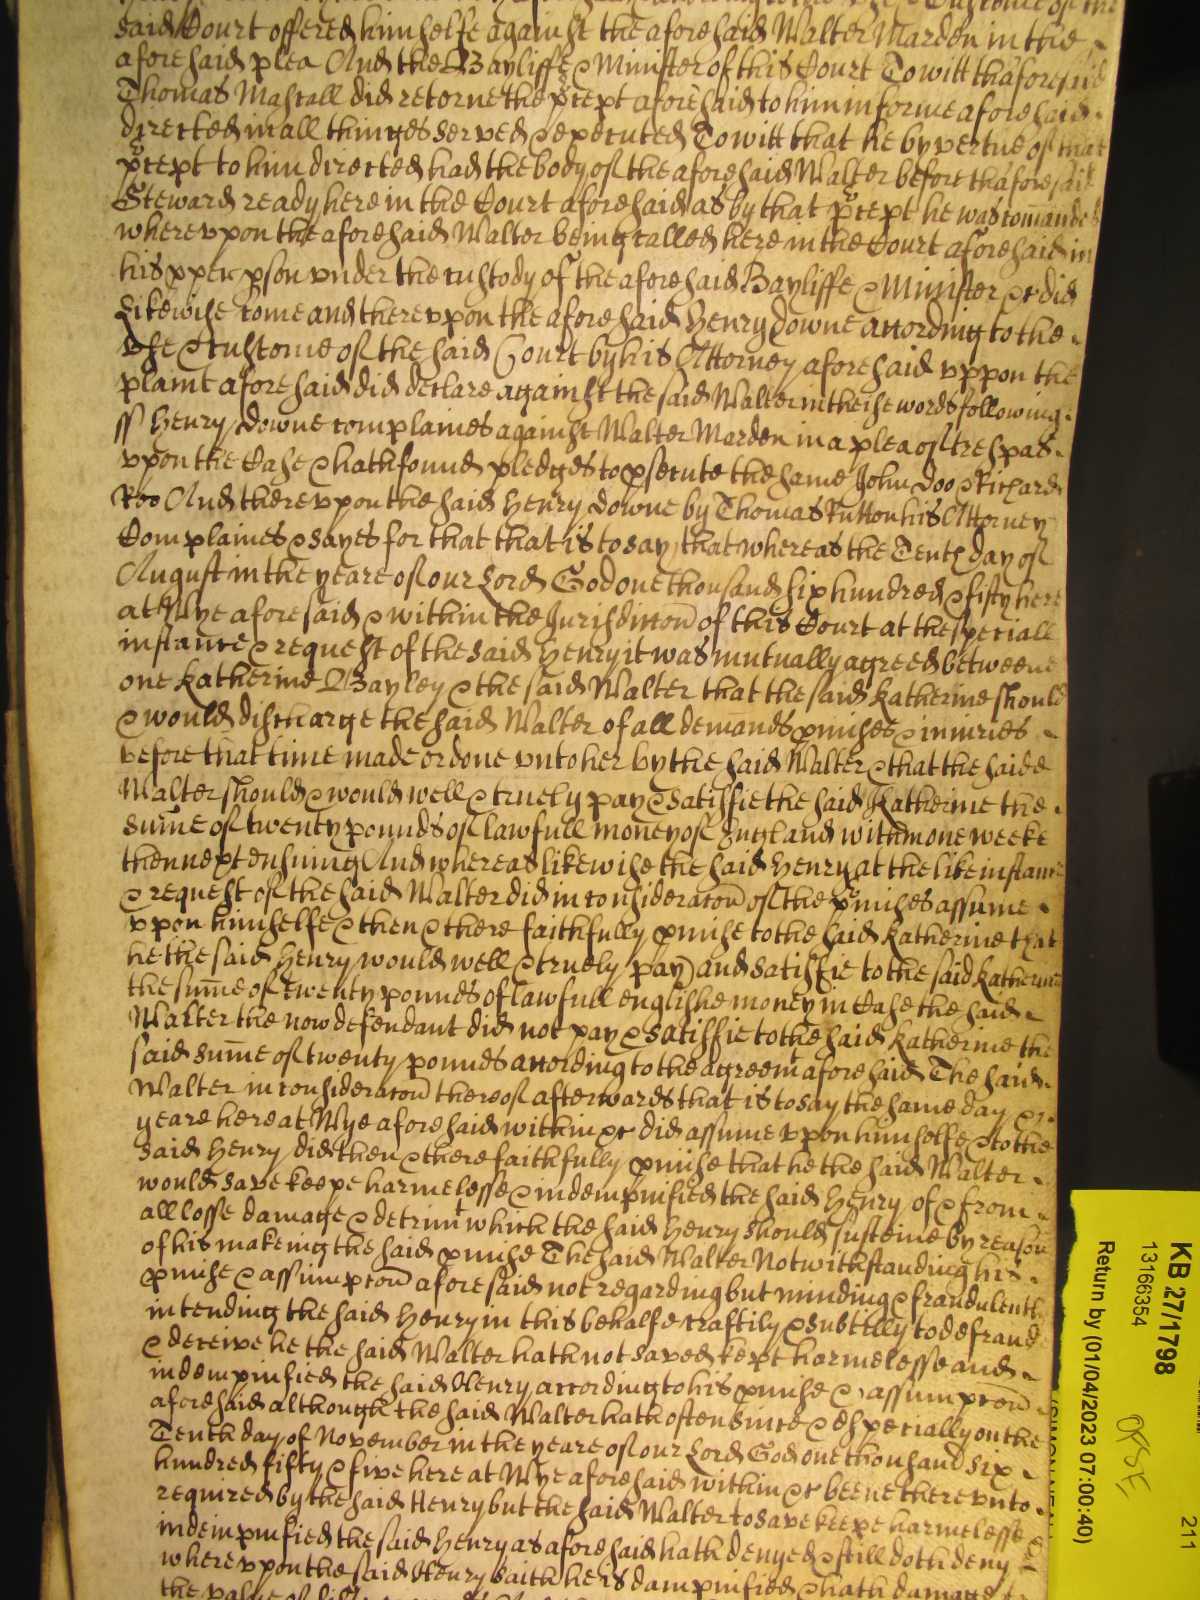 said Court offered himselfe against the aforesaid Walter Marden in the
aforesaid plea And the Bayliffe & Minister of this Court To witt thaforesaid
Thomas Mastall did retorne the pcept aforesaid to him in forme aforesaid
directed in all thinges served & executed To witt that he by vertue of that
pcept to him directed had the body of the aforesaid Walter before thaforesaid
Steward ready here in the Court aforesaid as by that pcept he was comanded
wherevpon the aforesaid Walter being called here in the Court aforesaid in
his pper pson vnder the custody of the aforesaid Bayliffe & Minister &c did
Likewise come and therevpon the aforesaid Henry Downe according to the
vse & custome of the said Court by his Attorney aforesaid vppon the
plaint aforesaid did declare against the said Walter in theise words following
ss Henry Downe complaines against Walter Marden in a plea of trespas
vpon the Case & hath found pledges to psecute the same John Doo & Richard
Roo And therevpon the said Henry Downe by Thomas Rutton his Attorney
Complaines & sayes for that that is to say that whereas the Tenth day of
August in the yeare of our Lord God one thousand six hundred & fifty here
at Wye aforesaid & within the Jurisdiccon of this Court at the speciall
instance & request of the said Henry it was mutually agreed betweene
one Katherine Bayley & the said Walter that the said Katherine should
& would discharge the said Walter of all demands pmises & iniuries
before that time made or done vnto her by the said Walter & that the saide
Walter should & would well & truely pay & satisfie the said Katherine the
sume of twenty pounds of lawfull money of England within one weeke
then next ensuing And whereas likewise the said Henry at the like instance
& request of the said Walter did in consideracon of the pmises assume
vpon himselfe & then & there faithfully pmise to the said Katherine that
he the said Henry would well & truely pay and satisfie to the said Katherine
the sume of twenty pounds of lawfull englishe money in Case the said
Walter the now defendant did not pay & satisfie to the said Katherine the
said sume of twenty pounds according to the agreemt aforesaid The said
Walter in consideracon thereof afterwards that is to say the same day &
yeare here at Wye aforesaid within &c did assume vpon himselfe & to the
said Henry did then & there faithfully pmise that he the said Walter
would save keepe harmelesse & indempnified the said Henry of & from
all losse damage & detrimt which the said Henry should susteine by reason
of his makeing the said pmise The said Walter Notwithstanding his
pmise & assumpcon aforesaid not regarding but minding & fraudulently
intending the said Henry in this behalfe craftily & subtilly to defraud
& deceive he the said Walter hath not saved kept harmelesse and
indempnified the said Henry according to his pmise & assumpcon
aforesaid although the said Walter hath often since & especially on the
Tenth day of November in the yeare of our Lord God one thousand six
hundred fifty & five here at Wye aforesaid within &c beene therevnto
required by the said Henry but the said Walter to save keepe harmelesse &
indempnified the said Henry as aforesaid hath denyed & still doth deny
wherevpon the said Henry saith he is dampnified & hath damage to
the value of
KB 27/1798
13166354
Return by (01/04/2023 07:00:40)
211